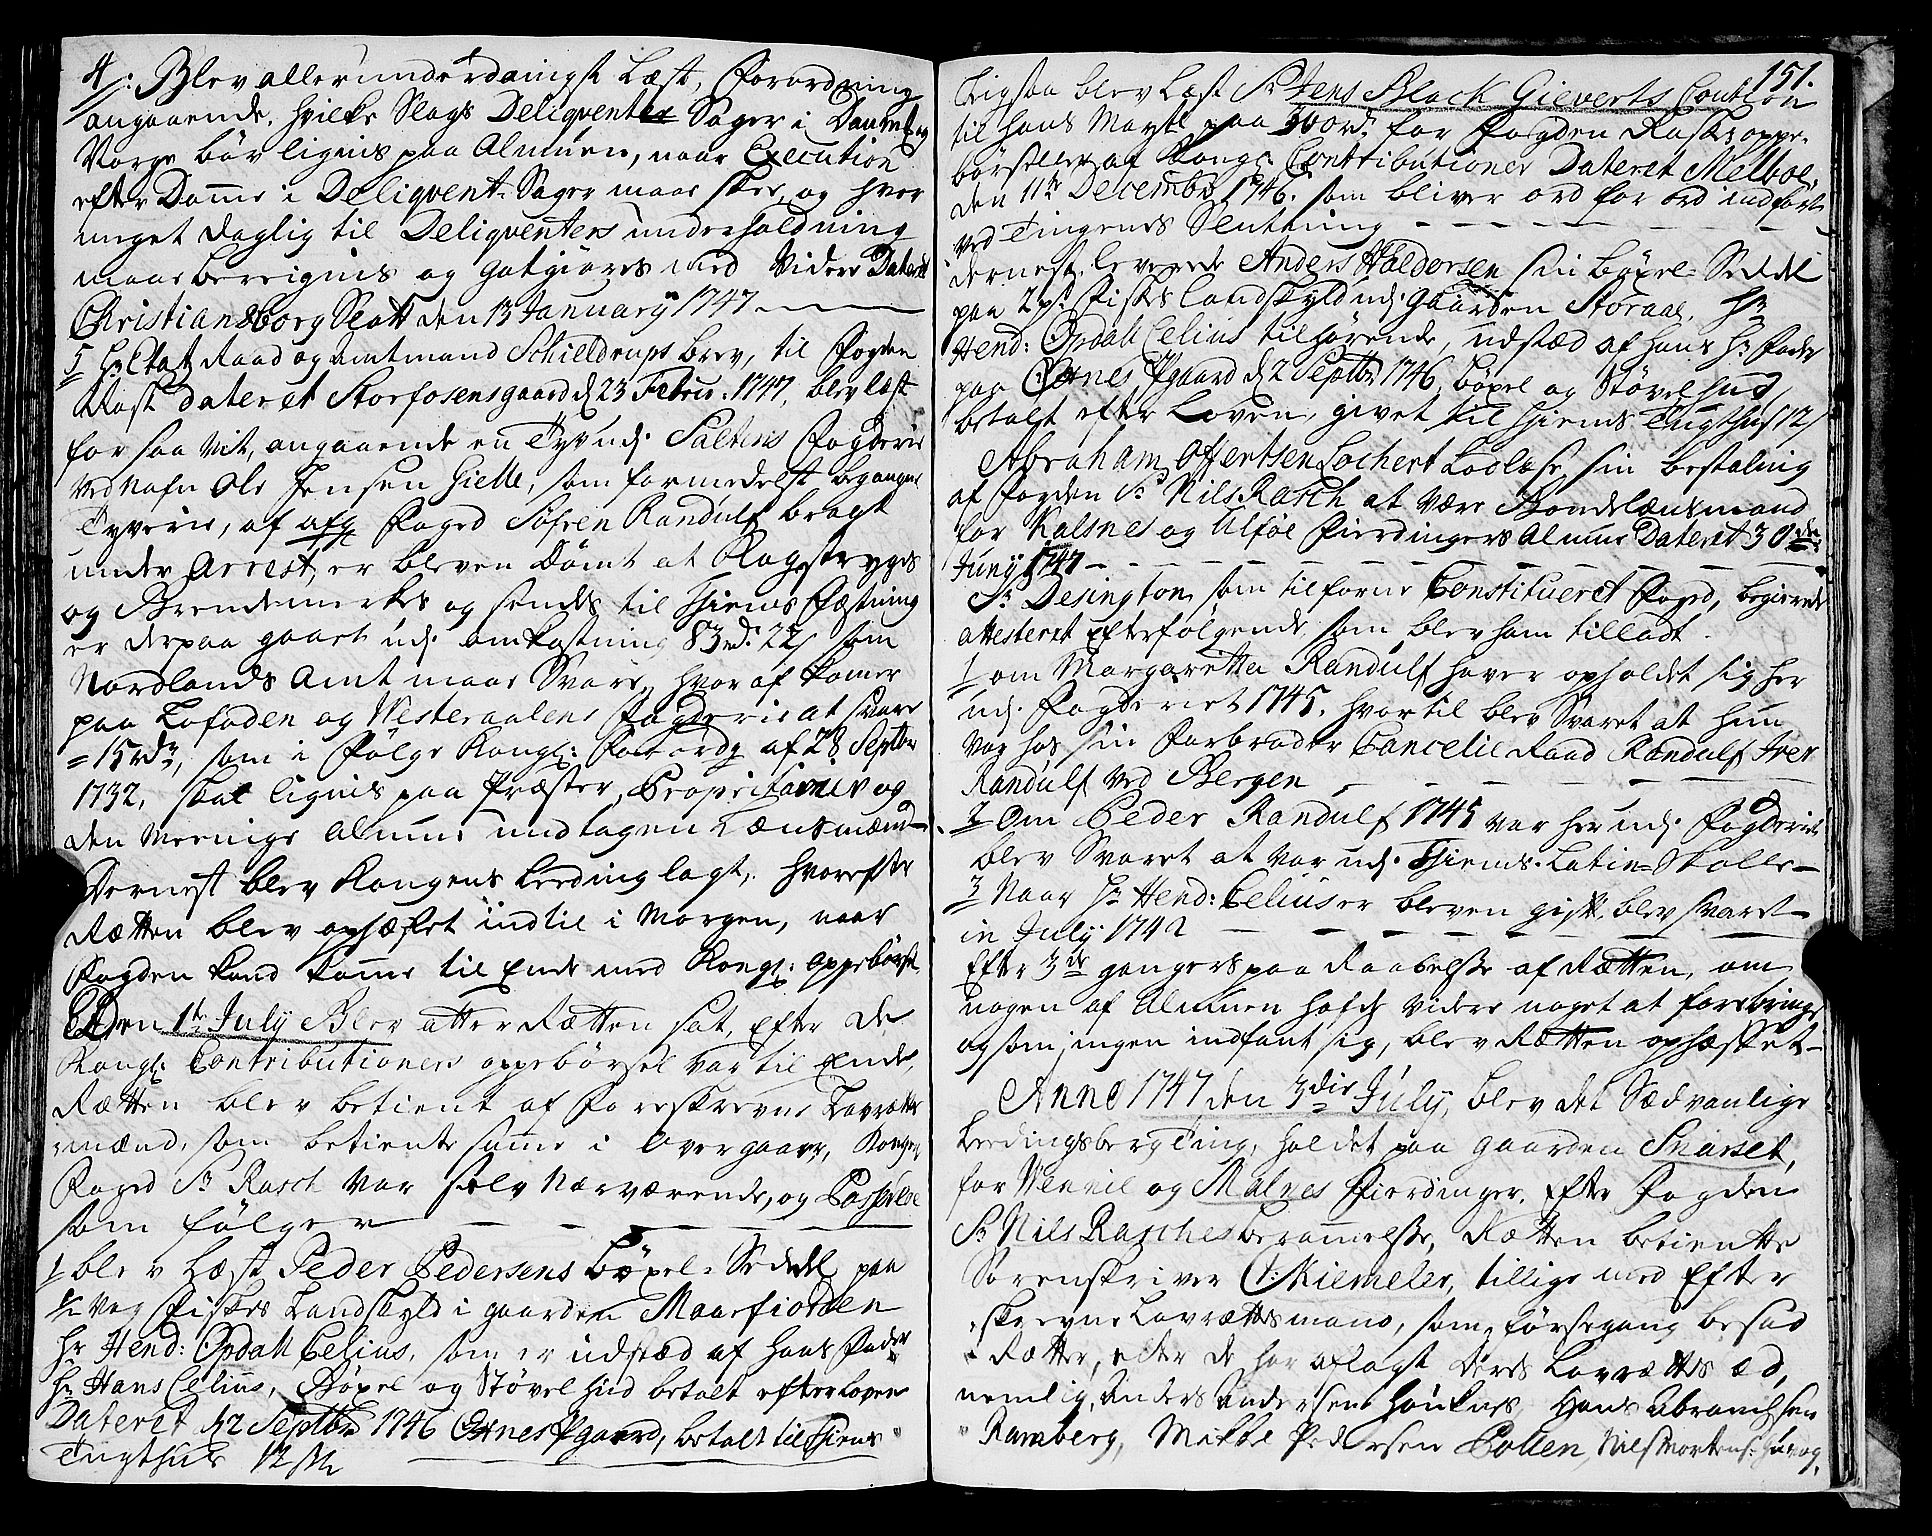 4/: Blev allerunderdaanigst Læst, Forordning
angaaende, hvilke Slags Deliqventer Sager i Danmk og
Norge bör lignis paa Almuen, naar Execution
efter Domme i Deliqvent-Sager maae skee, og hvor
meget daglig til Deliqventers underholdning
maae bereignis og godgiöres med Videre Dateret
Christiansborg Slott den 13 January 1747
5 Hr Etats Raad og Amtmand Schieldrups brev, til Fogden
Rask dateret Storfosensgaard d 23 Febru: 1747, blev læst
for saa vit, angaaende en Tyv udj Saltens Fogderie
Ved Nafn Ole Jensen Gielle, som formedelst begangne
Tyverie, af afg Foged Söfren Randulf bragt
under Arrest, er bleven Dömt at Kagstryges
og Brendemerkes og sendes til Thiems Fæstning
er derpaa gaaet udj omkostning 83 rd: 22/ som
Nordlands Amt maae Svare, hvoraf komer
paa Lofoden og Westeraalens Fogderie at svare
= 15 rdr, som i Fölge Kongl: Forordg af 28 Septbr
1732, skal lignis paa Præster, Proprietairer og
den Meenige Almue undtagen Lænsmænd
Dernest blev Kongens Leeding lagt, hvorefter
Rætten blev ophæfvet indtil i Morgen, naar
Fogden kand komme til Ende med Kongl: oppebörsel
Den 1te July Blev atter Rætten sat, Efter de
Kongl: Contributioners oppebörsel var til Ende,
Rætten blev betient af Foreskrevne Lavrættes
mænd, som betiente samme i Overgaar, Kongens
Foged Sr Rasch Var selv Nærværende, og Passerede
som fölger
1 blev Læst Peder Pedersens Böxel-Seddel paa
½ Vog Fiskes Landskyld i gaarden Maarfiorden
Hr Hend: Opdall Celius, som er udstæd af Hans Fader
Hr Hans Celius, Böxel og Stövel Hud betalt efter Loven
Dateret d 2 Septbr 1746 Oxnes Pgaard, betalt til Thiems
Tugthus 12 /
151.
Ligesaa blev Læst Sr Jens Black Gieverts Caution
til Hans Mayt paa 300 rd: for Fogden Rasks oppe-
börseller af Kongl: Contributioner Dateret Melboe,
den 11te Decembr 1746. som bliver ord for ord indfört
Ved Tingenes Slutning
dernest leverede Anders Haldorsen sin Böxel-Seddel
paa 2 pd: Fiskes Landskyld udj gaarden Storaae, Hr
Hend: Opdall Celius tilhörende, udstæd af Hans Hr Fader
paa Oxnes Pgaard d 2 Septbr 1746, böxel og Stövelhud
betalt efter Loven, givet til Thiems Tugthus 12/
Abraham Ofertsen Lochert Lod læse, sin bestaling
af Fogden Sr Nils Rasch at Være Bondelænsmand
for Kalsnes og Ulföe Fierdingers Almue Dateret 30de
Juny 1747
Sr Desington som tilforne Constitueret Foged, begierede
attesteret Efterfölgende, som blev ham tilladt.
1 om Margaretta Randulf haver opholdet sig her
udj Fogderiet 1745, hvortil blev Svaret at hun
Var hos sin Farbroder Cancelie Raad Randulf Iver
Randulf ved Bergen
2 Om Peder Randulf 1745 var her udj Fogderiet
blev Svaret at Var udj Thiems Latin-Skolle
3 Naar Hr Hend: Celius er bleven gift, blev svaret
in July 1742
Efter 3de gangers paa Raabelse af Rætten, om
nogen af Almuen hafde videre noget at forebringe
og som ingen indfant sig, blev Rætten ophæfvet
Anno 1747 den 3die July, blev det Sædvanlige
Leedingsberg Ting, holdet paa gaarden Snarset,
for Vennie og Malnes Fierdinger, Efter Fogden
Sr Nils Rasches berammelse, Rætten betiente
Sorenskriver C: Kiemeler, tillige med Efter
skrevne Lavrættesmænd, som förstegang besad
Rætten, efter de har aflagt Deres Lavrættes Æd,
nemlig, Anders Andersen Hauknes, Hans Abramhsen
Ramberg, Mikkel Pedersen Pollen, Nils Mortens: